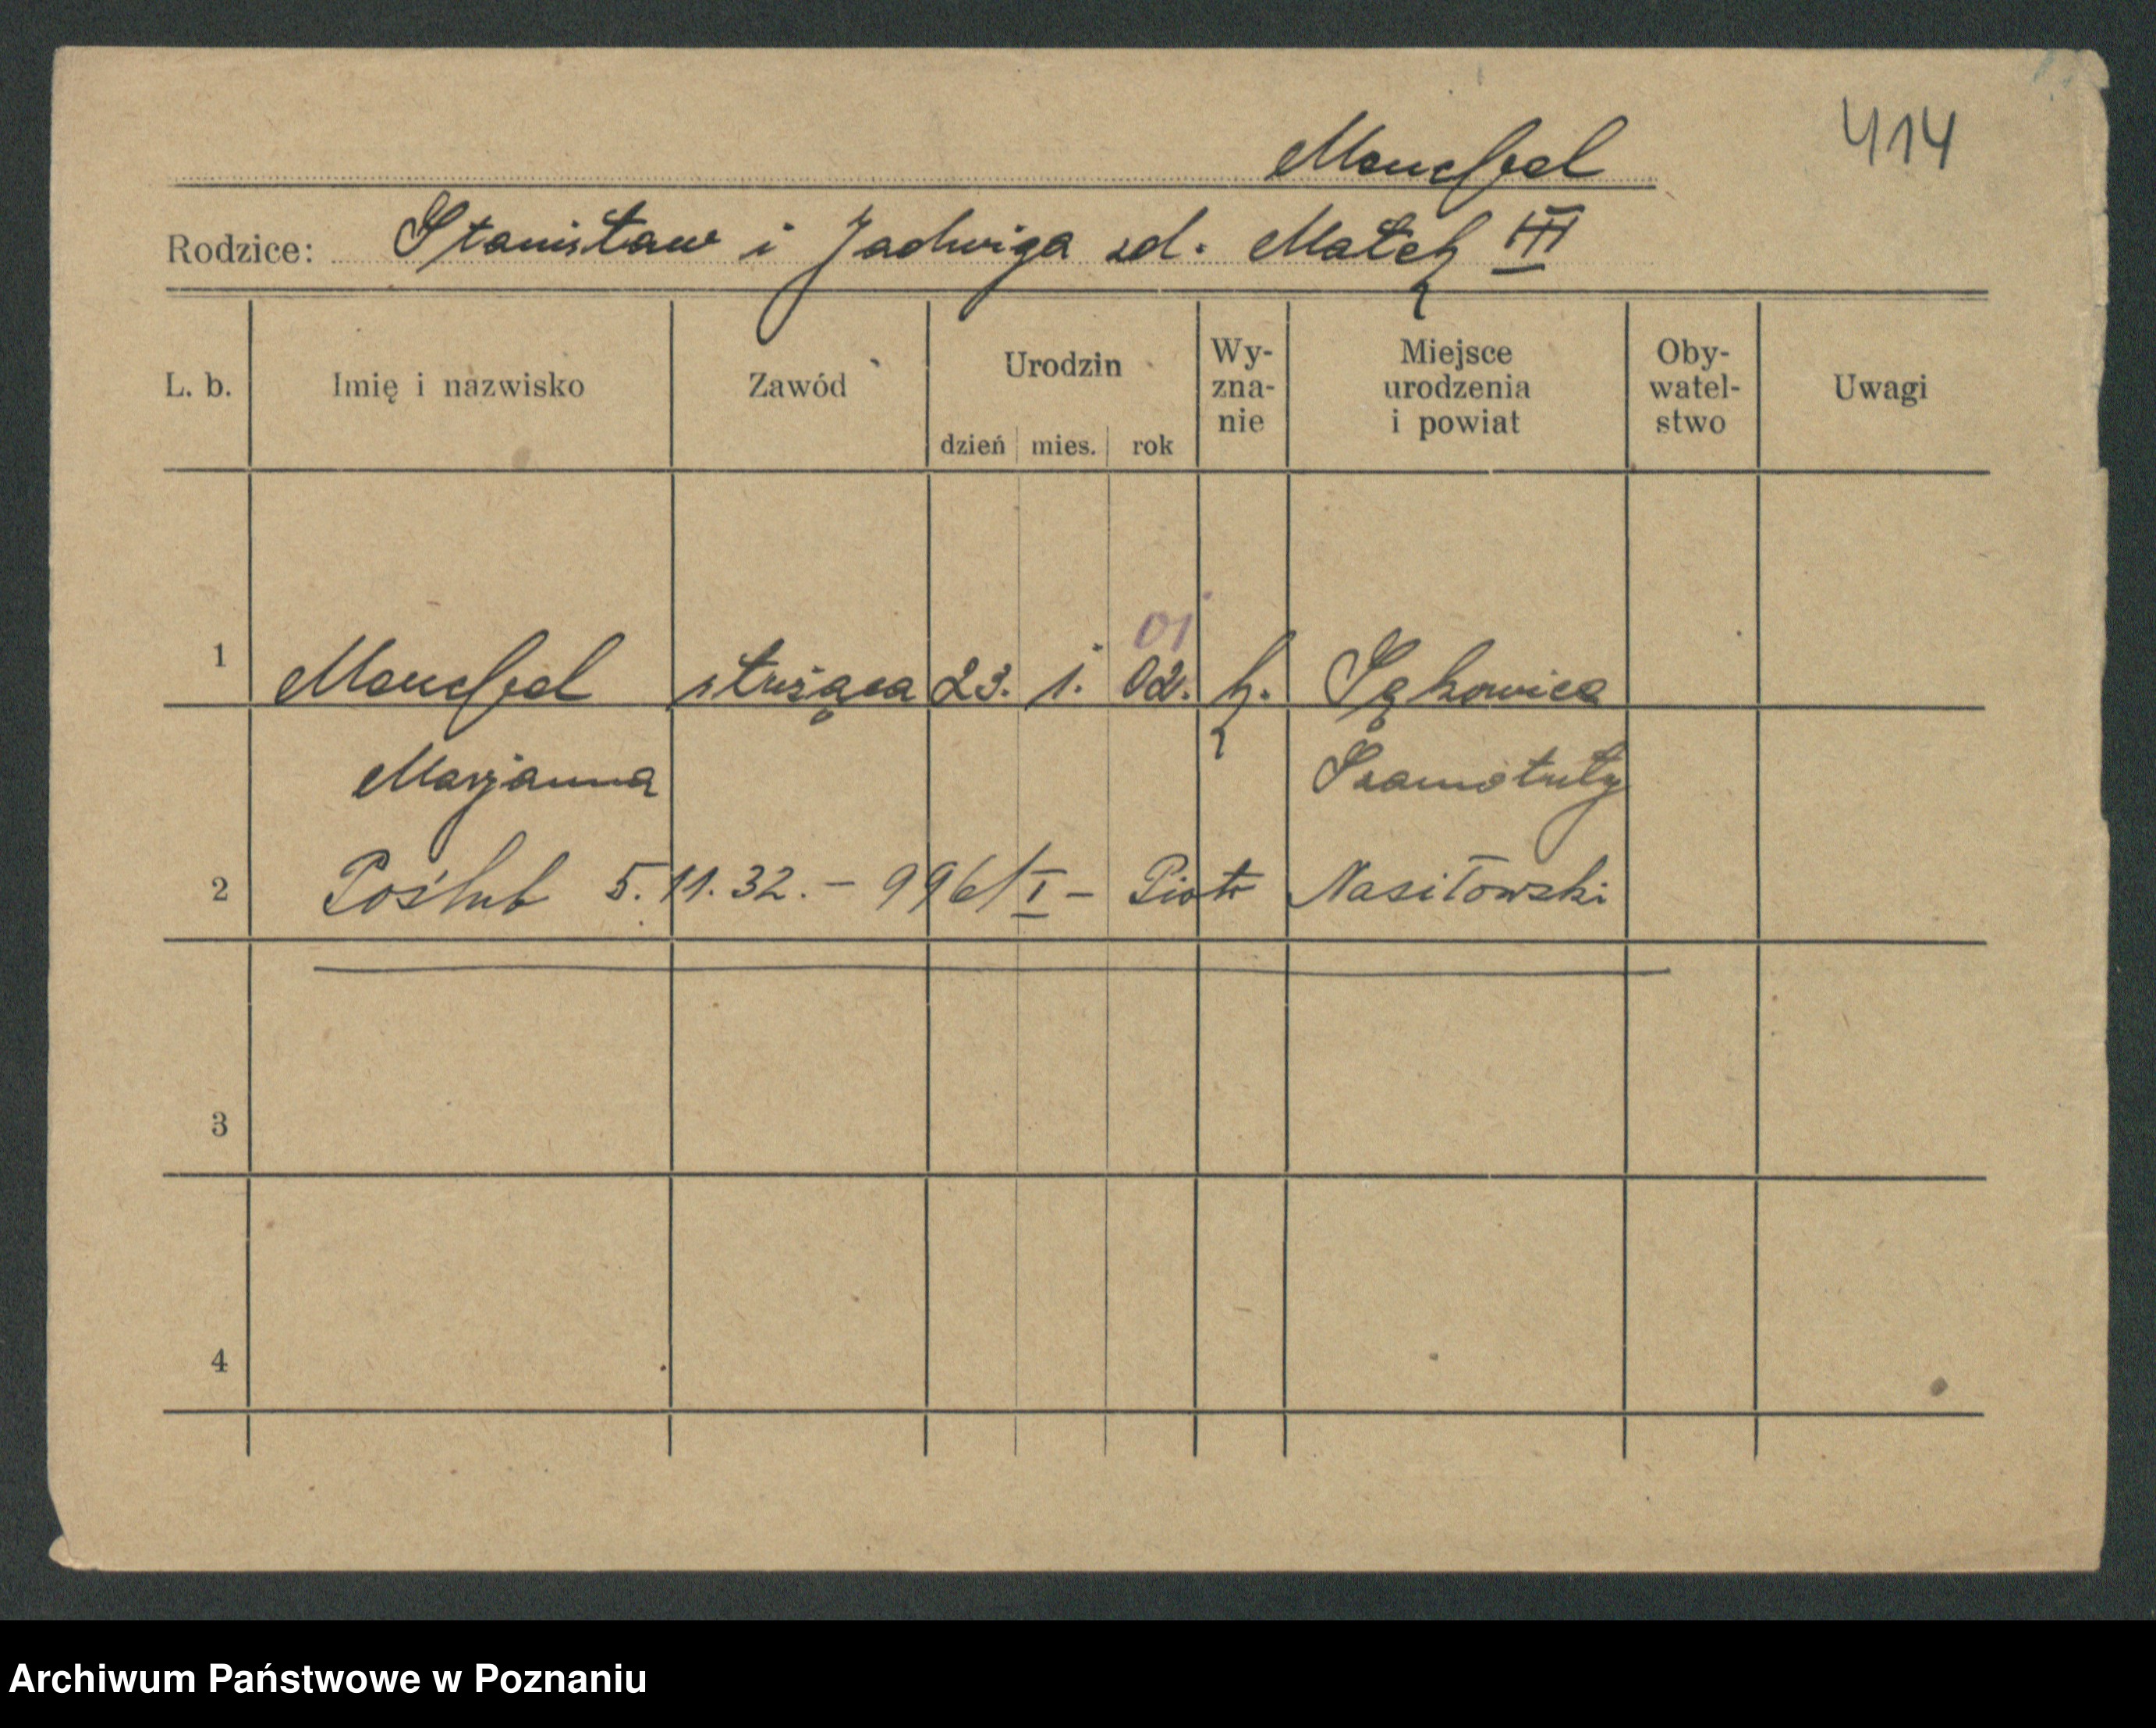 414
Menclfel
Rodzice: Stanisław i Jadwiga zd. Małek III
L. b. Imię i nazwisko Zawód Urodzin dzień mies. rok Wy-zna-nie Miejsce urodzenia i powiat Oby-watel-stwo Uwagi
01
1 Menclfel służąca 23. 1. 02. k. Sękowice
Marjanna Szamotuły
2 Poślub 5.11.32. – 996/I – Piotr Nasiłowski
3
4
Archiwum Państwowe w Poznaniu